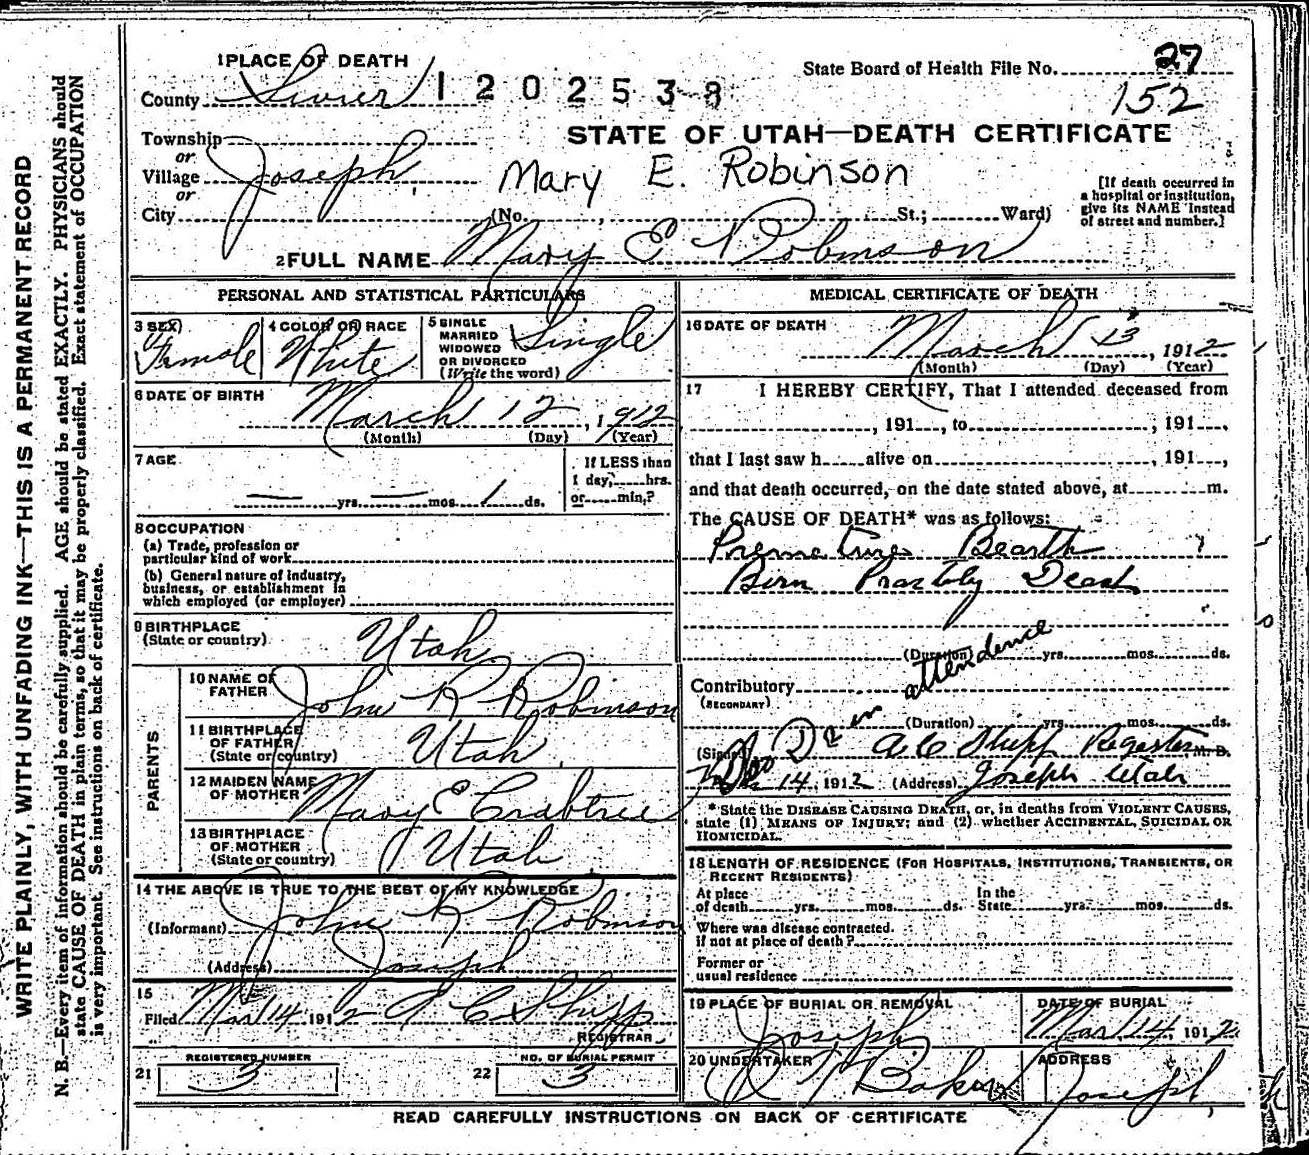 WRITE PLAINLY, WITH UNFADING INK—THIS IS A PERMANENT RECORD
N. B.—Every item of information should be carefully supplied. AGE should be stated EXACTLY. PHYSICIANS should
state CAUSE OF DEATH in plain terms, so that it may be properly classified. Exact statement of OCCUPATION
is very important. See instructions on back of certificate.
1 PLACE OF DEATH
County Sevier
1202538
State Board of Health File No. 27
152
STATE OF UTAH—DEATH CERTIFICATE
Township
or
Village Joseph
or
City
Mary E. Robinson
(No. St.; Ward)
[If death occurred in
a hospital or institution,
give its NAME instead
of street and number.]
2 FULL NAME Mary E Robinson
PERSONAL AND STATISTICAL PARTICULARS
3 SEX
Female
4 COLOR OR RACE
White
5 SINGLE
MARRIED
WIDOWED
OR DIVORCED
(Write the word)
Single
6 DATE OF BIRTH
March 12, 1912
(Month) (Day) (Year)
7 AGE
— yrs. — mos. 1 ds.
If LESS than
1 day, hrs.
or min.?
8 OCCUPATION
(a) Trade, profession or
particular kind of work
(b) General nature of industry,
business, or establishment in
which employed (or employer)
9 BIRTHPLACE
(State or country)
Utah
PARENTS
10 NAME OF
FATHER
John R Robinson
11 BIRTHPLACE
OF FATHER
(State or country)
Utah
12 MAIDEN NAME
OF MOTHER
Mary E Crabtree
13 BIRTHPLACE
OF MOTHER
(State or country)
Utah
14 THE ABOVE IS TRUE TO THE BEST OF MY KNOWLEDGE
(Informant) John R Robinson
(Address) Joseph
15
Filed Mar 14 1912 A C Shipp
REGISTRAR
REGISTERED NUMBER
21 3
NO. OF BURIAL PERMIT
22 3
MEDICAL CERTIFICATE OF DEATH
16 DATE OF DEATH
March 13, 1912
(Month) (Day) (Year)
17 I HEREBY CERTIFY, That I attended deceased from
, 191 , to , 191 ,
that I last saw h alive on , 191 ,
and that death occurred, on the date stated above, at m.
The CAUSE OF DEATH* was as follows:
Premature Bearth
Born Dead
(Duration) yrs. mos. ds.
Contributory
(SECONDARY)
(Duration) yrs. mos. ds.
No Dr in attendence
(Signed) A C Shipp Register M. D.
14, 1912 (Address) Joseph Utah
*State the DISEASE CAUSING DEATH, or, in deaths from VIOLENT CAUSES,
state (1) MEANS OF INJURY; and (2) whether ACCIDENTAL, SUICIDAL OR
HOMICIDAL.
18 LENGTH OF RESIDENCE (FOR HOSPITALS, INSTITUTIONS, TRANSIENTS, OR
RECENT RESIDENTS)
At place
of death yrs. mos. ds.
In the
State yrs. mos. ds.
Where was disease contracted
if not at place of death?
Former or
usual residence
19 PLACE OF BURIAL OR REMOVAL
Joseph
DATE OF BURIAL
Mar 14, 1912
20 UNDERTAKER
Baker
ADDRESS
Joseph
READ CAREFULLY INSTRUCTIONS ON BACK OF CERTIFICATE